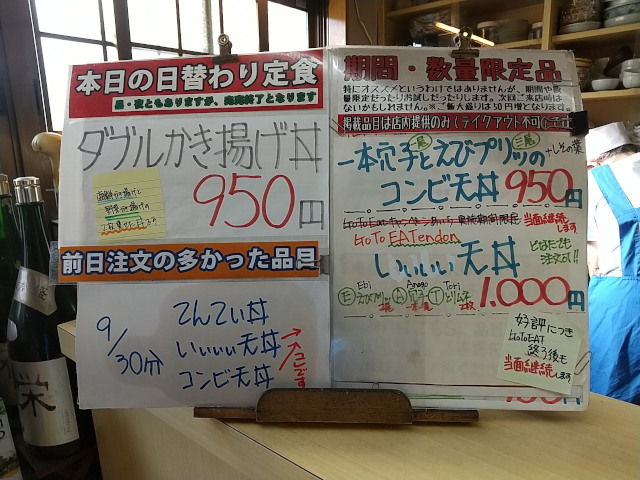 本日の日替わり定食
昼・夜ともありますが、売切終了となります
ダブルかき揚げ丼
950円
海鮮かき揚げと
野菜かき揚げの
2枚乗せた丼です
前日注文の多かった品目
9/30分
てんてい丼
いいいい天丼
コンビ天丼
ここです
期間・数量限定品
特にオススメというわけではありませんが、期間や数
量限定だったりお試しだったりします。次回ご来店時は
ないかもしれません。※ご飯大盛りは50円増となります。
掲載品目は店内提供のみ(テイクアウト不可)です
一本穴子とえびプリッツの
+しその葉
コンビ天丼 950円
当面継続します
GoTo EATendon
どなたでも
注文可!!
いいいい天丼
1,000円
Ebi
Anago
Tori
E えびプリッツ A アナゴ T とりムネ
好評につき
GoToEAT
終了後も
当面継続します
栄